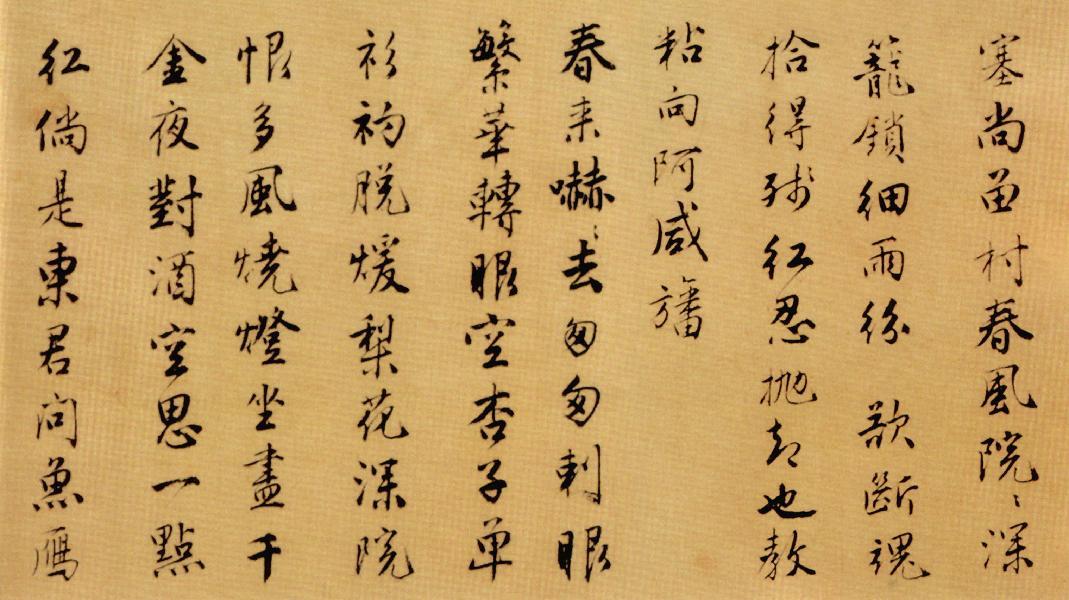 塞尚留村春風院〻深
籠鎖細雨紛 欲斷魂
拾得殘紅忍抛却也教
粘向阿咸旛
春来嚇〻去匆匆刺眼
繁華轉眼空杏子單
衫初脱煖梨花深院
恨多風燒燈坐盡千
金夜對酒空思一點
紅倘是東君问魚鴈